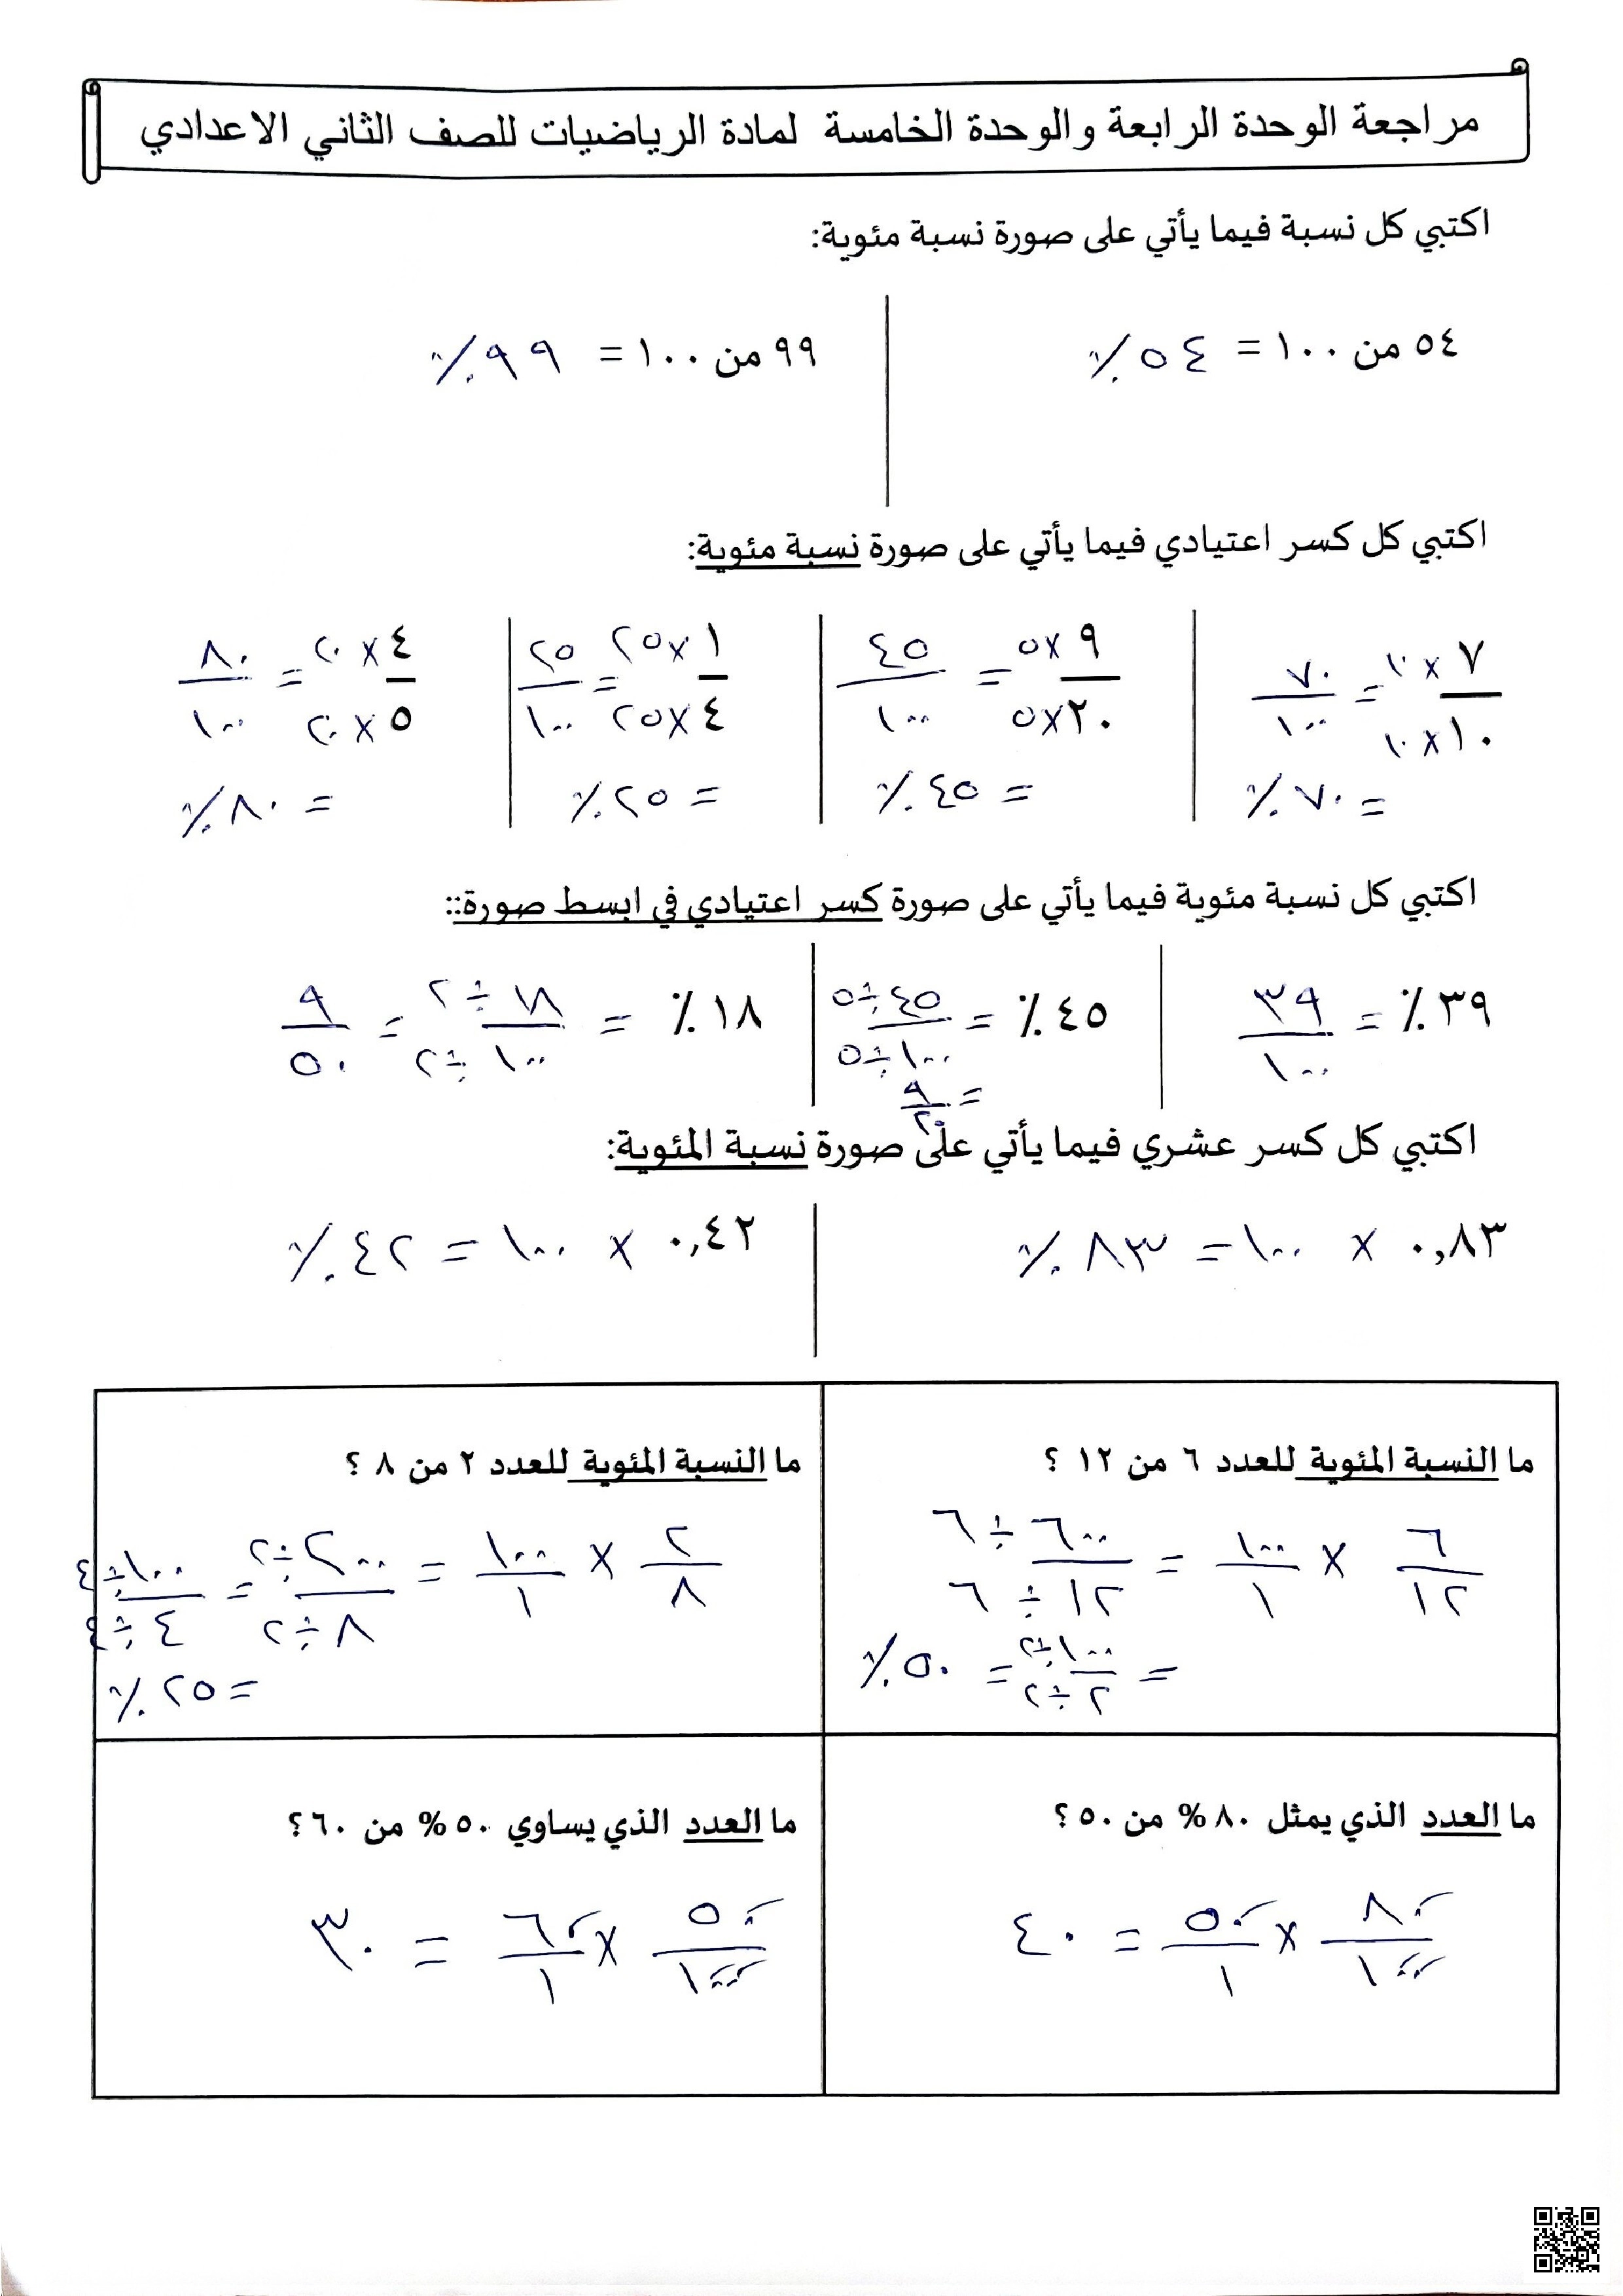 مراجعة الوحدة الرابعة والوحدة الخامسة لمادة الرياضيات للصف الثاني الاعدادي
اكتبي كل نسبة فيما يأتي على صورة نسبة مئوية:
٥٤ من ١٠٠ = ٥٤٪
٩٩ من ١٠٠ = ٩٩٪
اكتبي كل كسر اعتيادي فيما يأتي على صورة نسبة مئوية:
٧ × ١٠ / ١٠ × ١٠ = ٧٠ / ١٠٠
= ٧٠٪
٩ × ٥ / ٢٠ × ٥ = ٤٥ / ١٠٠
= ٤٥٪
١ × ٢٥ / ٤ × ٢٥ = ٢٥ / ١٠٠
= ٢٥٪
٤ × ٢٠ / ٥ × ٢٠ = ٨٠ / ١٠٠
= ٨٠٪
اكتبي كل نسبة مئوية فيما يأتي على صورة كسر اعتيادي في ابسط صورة::
٣٩٪ = ٣٩ / ١٠٠
٤٥٪ = ٤٥ ÷ ٥ / ١٠٠ ÷ ٥
= ٩ / ٢٠
١٨٪ = ١٨ ÷ ٢ / ١٠٠ ÷ ٢ = ٩ / ٥٠
اكتبي كل كسر عشري فيما يأتي على صورة نسبة المئوية:
٠,٨٣ × ١٠٠ = ٨٣٪
٠,٤٢ × ١٠٠ = ٤٢٪
ما النسبة المئوية للعدد ٦ من ١٢ ؟
٦ / ١٢ × ١٠٠ / ١ = ٦٠٠ ÷ ٦ / ١٢ ÷ ٦
= ١٠٠ ÷ ٢ / ٢ ÷ ٢ = ٥٠٪
ما النسبة المئوية للعدد ٢ من ٨ ؟
٢ / ٨ × ١٠٠ / ١ = ٢٠٠ ÷ ٢ / ٨ ÷ ٢ = ١٠٠ ÷ ٤ / ٤ ÷ ٤
= ٢٥٪
ما العدد الذي يمثل ٨٠% من ٥٠ ؟
٨٠ / ١٠٠ × ٥٠ / ١ = ٤٠
ما العدد الذي يساوي ٥٠% من ٦٠ ؟
٥٠ / ١٠٠ × ٦٠ / ١ = ٣٠